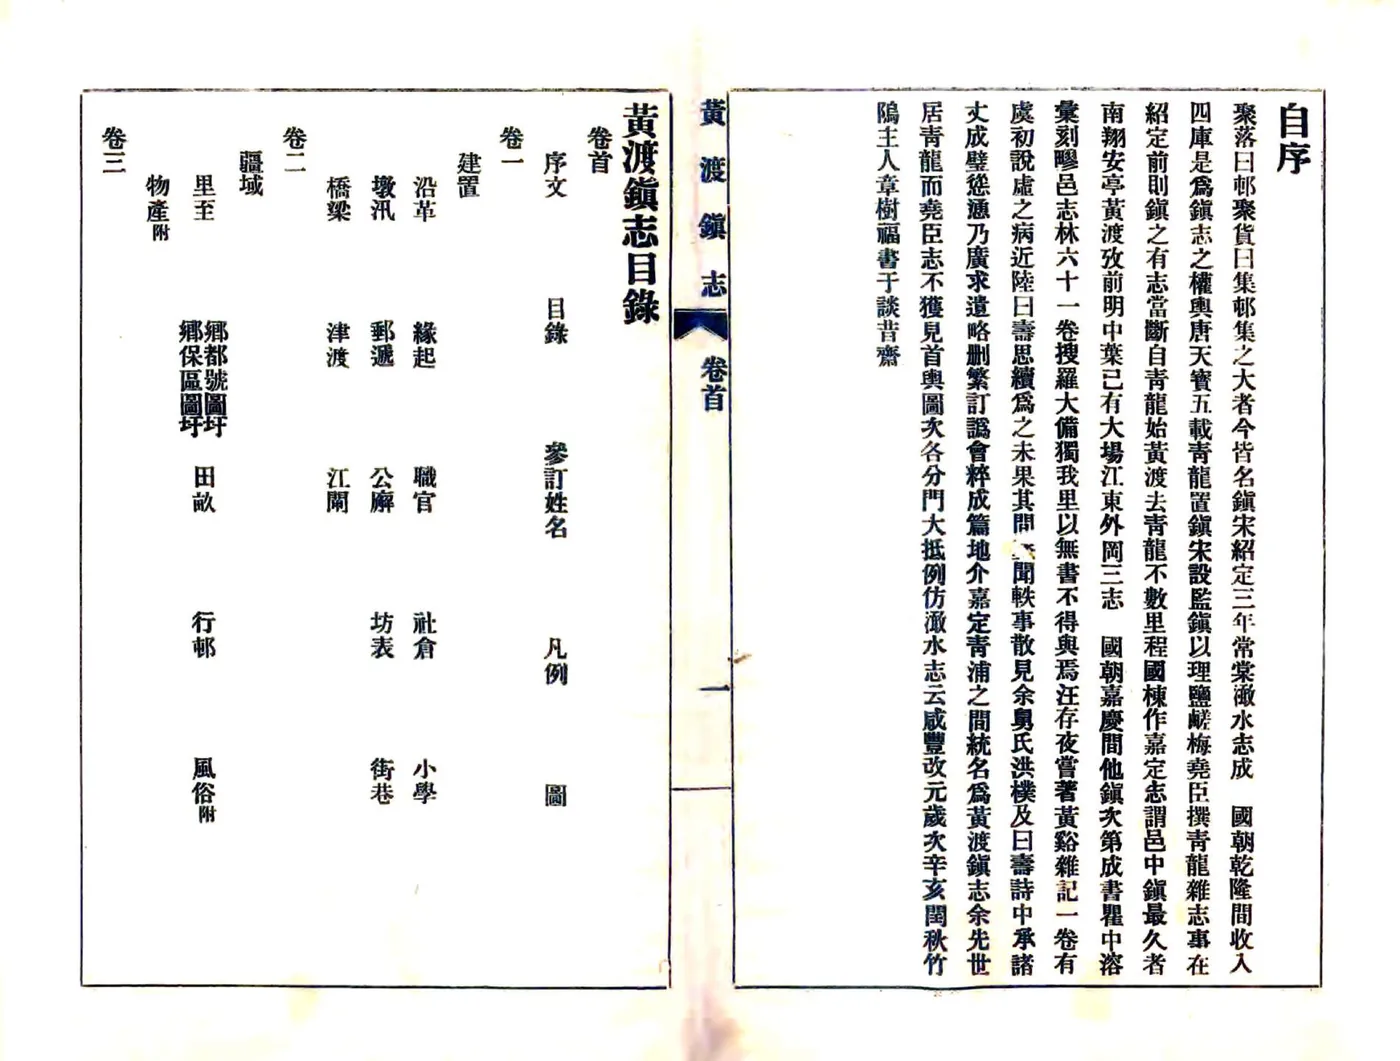 自序
聚落曰邨聚貨曰集邨集之大者今皆名鎭宋紹定三年常棠澉水志成　國朝乾隆間收入
四庫是爲鎭志之權輿唐天寶五載靑龍置鎭宋設監鎭以理鹽鹺梅堯臣撰靑龍雜志事在
紹定前則鎭之有志當斷自靑龍始黃渡去靑龍不數里程國棟作嘉定志謂邑中鎭最久者
南翔安亭黃渡攷前明中葉已有大場江東外岡三志　國朝嘉慶間他鎭次第成書瞿中溶
彙刻疁邑志林六十一卷搜羅大備獨我里以無書不得與焉汪存夜嘗著黃谿雜記一卷有
虞初說虛之病近陸曰壽思續爲之未果其間聞軼事散見余舅氏洪樸及曰壽詩中承諸
丈成璧慫慂乃廣求遺略刪繁訂譌會粹成篇地介嘉定靑浦之間統名爲黃渡鎭志余先世
居靑龍而堯臣志不獲見首輿圖次各分門大抵例仿澉水志云咸豐改元歲次辛亥閏秋竹
隝主人章樹福書于談昔齋
黃渡鎭志
卷首
一
黃渡鎭志目錄
卷首
序文　目錄　參訂姓名　凡例　圖
卷一
建置
沿革　緣起　職官　社倉　小學
墩汛　郵遞　公廨　坊表　街巷
橋梁　津渡　江閘
卷二
疆域
里至　鄉都號圖圩鄉保區圖圩　田畝　行邨　風俗附
物產附
卷三